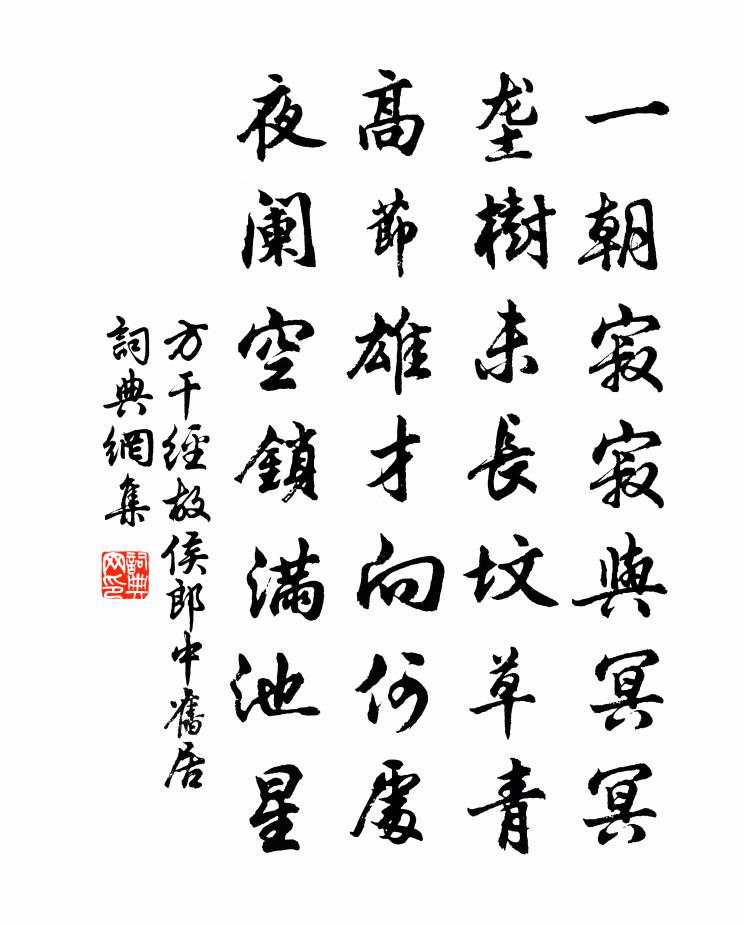 一朝寂寂與冥冥
垄樹未長坟草青
高節雄才向何處
夜阑空鎖滿池星
方干經故侯郎中舊居
詞典網集
詞典网印